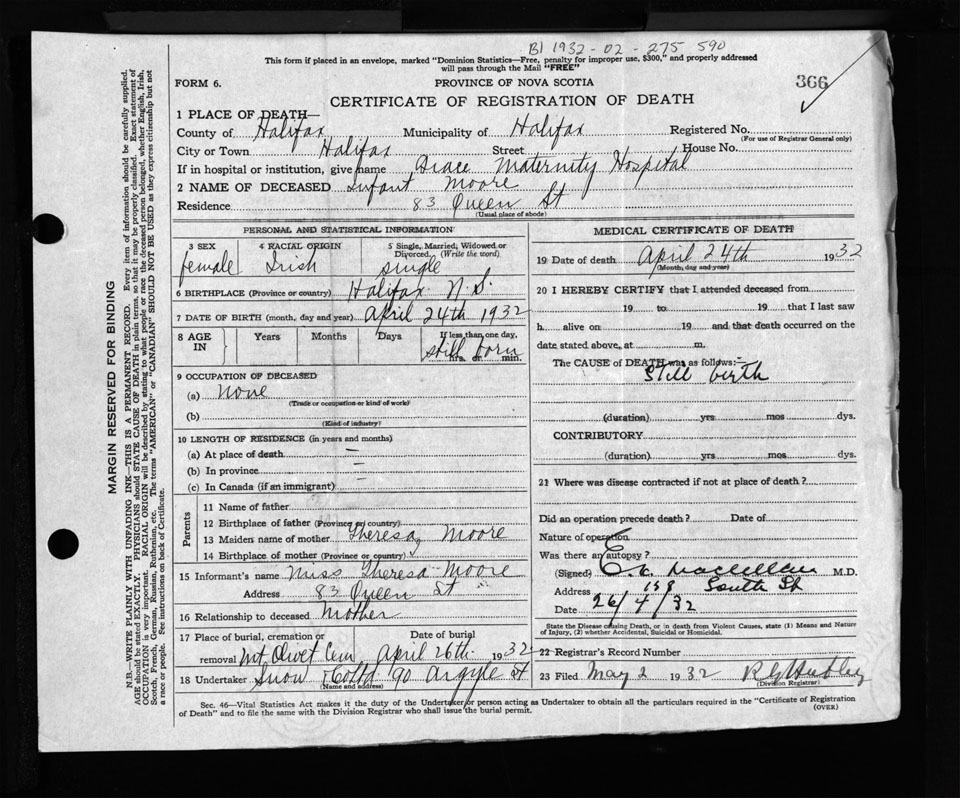 BI 1932-02-275 590
This form if placed in an envelope, marked "Dominion Statistics—Free, penalty for improper use, $300," and properly addressed
will pass through the Mail "FREE"
366
FORM 6. PROVINCE OF NOVA SCOTIA
CERTIFICATE OF REGISTRATION OF DEATH
1 PLACE OF DEATH—
County of Halifax Municipality of Halifax Registered No.
(For use of Registrar General only)
City or Town Halifax Street House No.
If in hospital or institution, give name Grace Maternity Hospital
2 NAME OF DECEASED Infant Moore
Residence 83 Queen St
(Usual place of abode)
PERSONAL AND STATISTICAL INFORMATION
3 SEX 4 RACIAL ORIGIN 5 Single, Married, Widowed or
Divorced. (Write the word)
female Irish single
6 BIRTHPLACE (Province or country) Halifax N.S.
7 DATE OF BIRTH (month, day and year) April 24th 1932
8 AGE IN Years Months Days If less than one day,
hrs. or min.
still born
9 OCCUPATION OF DECEASED
(a) None
(Trade or occupation or kind of work)
(b)
(Kind of industry)
10 LENGTH OF RESIDENCE (in years and months)
(a) At place of death —
(b) In province —
(c) In Canada (if an immigrant)
Parents
11 Name of father
12 Birthplace of father (Province or country)
13 Maiden name of mother Theresa Moore
14 Birthplace of mother (Province or country)
15 Informant's name Miss Theresa Moore
Address 83 Queen St
16 Relationship to deceased Mother
17 Place of burial, cremation or Date of burial
removal Mt Olivet Cem April 26th 1932
18 Undertaker Snow & Co Ltd 90 Argyle St
(Name and address)
MEDICAL CERTIFICATE OF DEATH
19 Date of death April 24th 1932
(Month, day and year)
20 I HEREBY CERTIFY that I attended deceased from
19 to 19 that I last saw
h alive on 19 and that death occurred on the
date stated above, at m.
The CAUSE of DEATH was as follows:—
Still birth
(duration) yrs mos dys.
CONTRIBUTORY
(duration) yrs mos dys.
21 Where was disease contracted if not at place of death?
Did an operation precede death? Date of
Nature of operation
Was there an autopsy?
(Signed) C. K. MacLellan M.D.
Address 159 South St
Date 26/4/32
State the Disease causing Death, or in death from Violent Causes, state (1) Means and Nature
of Injury, (2) whether Accidental, Suicidal or Homicidal.
22 Registrar's Record Number
23 Filed May 2 1932
(Division Registrar)
Sec. 46—Vital Statistics Act makes it the duty of the Undertaker or person acting as Undertaker to obtain all the particulars required in the "Certificate of Registration
of Death" and to file the same with the Division Registrar who shall issue the burial permit.
(OVER)
MARGIN RESERVED FOR BINDING
N.B.—WRITE PLAINLY WITH UNFADING INK—THIS IS A PERMANENT RECORD. Every item of information should be carefully supplied.
AGE should be stated EXACTLY. PHYSICIANS should STATE CAUSE OF DEATH in plain terms, so that it may be properly classified. Exact statement of
OCCUPATION is very important. RACIAL ORIGIN will be described by stating to what people or race the deceased person belonged, whether English, Irish,
Scotch, French, German, Russian, Ruthenian, etc. The terms "AMERICAN" or "CANADIAN" SHOULD NOT BE USED as they express citizenship but not
a race or people. See instructions on back of Certificate.